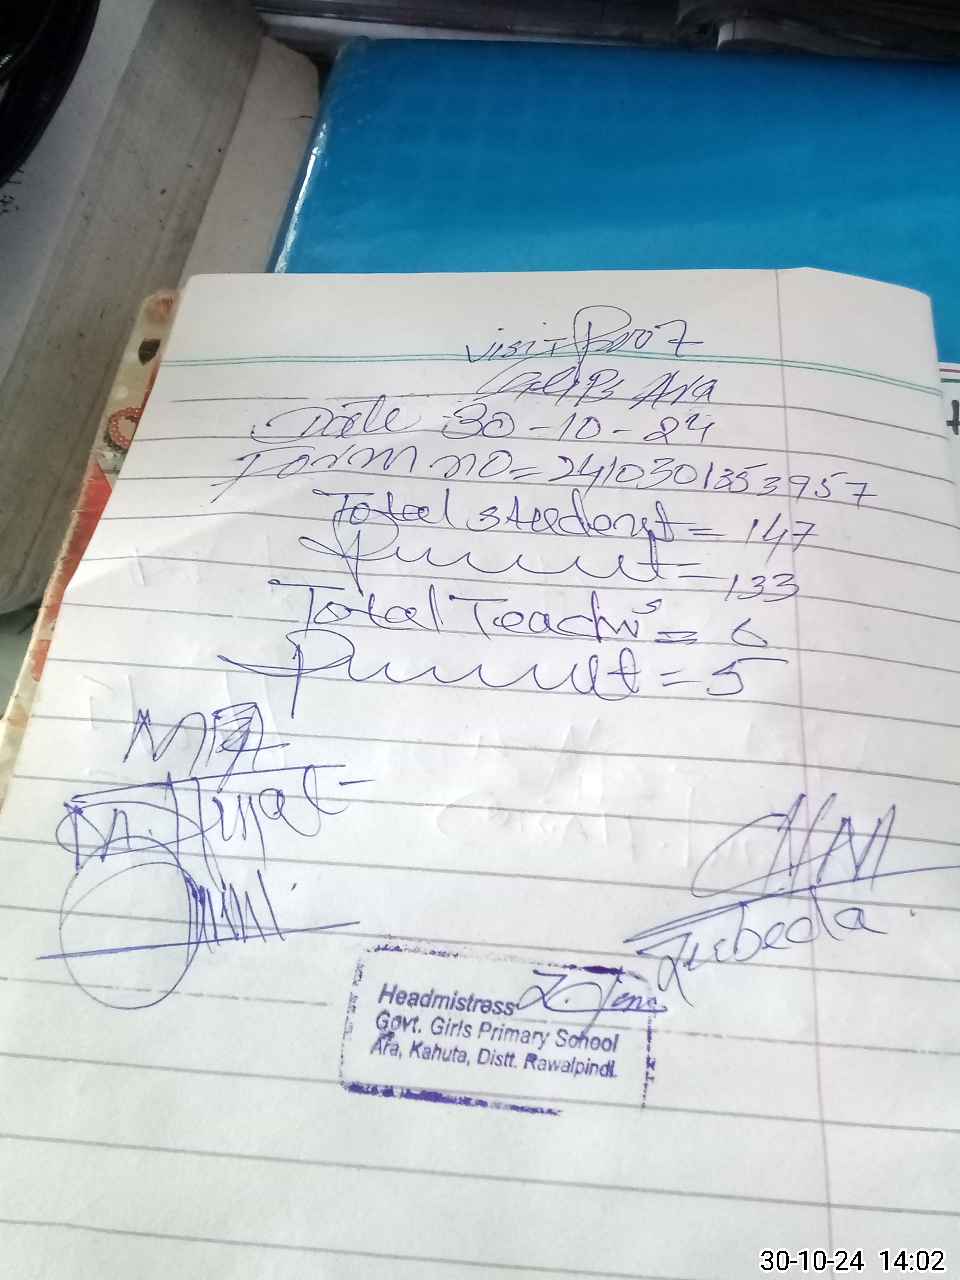 Visit Proof
GGPS Ara
Date 30-10-24
Form no = 2410301353957
Total student = 147
Present = 133
Total Teachrs = 6
Present = 5
Zubeda
Headmistress
Govt. Girls Primary School
Ara, Kahuta, Distt. Rawalpindi.
30-10-24 14:02